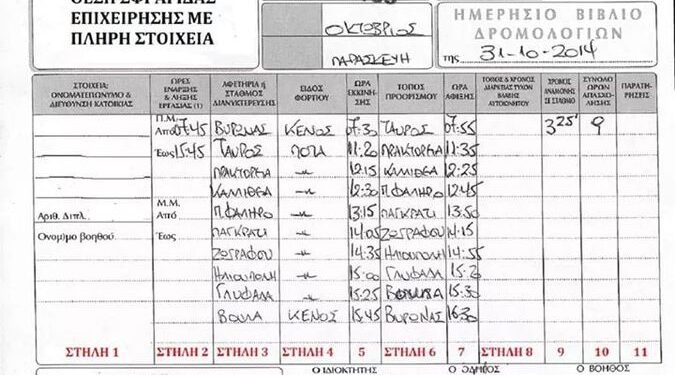 ΘΕΣΗ ΣΦΡΑΓΙΔΑΣ
ΕΠΙΧΕΙΡΗΣΗΣ ΜΕ
ΠΛΗΡΗ ΣΤΟΙΧΕΙΑ
ΟΚΤΩΒΡΙΟΣ
ΠΑΡΑΣΚΕΥΗ
ΗΜΕΡΗΣΙΟ ΒΙΒΛΙΟ
ΔΡΟΜΟΛΟΓΙΩΝ
της 31-10-2014
ΣΤΟΙΧΕΙΑ: ΟΝΟΜΑΤΕΠΩΝΥΜΟ & ΔΙΕΥΘΥΝΣΗ ΚΑΤΟΙΚΙΑΣ
ΩΡΕΣ ΕΝΑΡΞΗΣ & ΛΗΞΗΣ ΕΡΓΑΣΙΑΣ (1)
ΑΦΕΤΗΡΙΑ ή ΣΤΑΘΜΟΣ ΔΙΑΝΥΚΤΕΡΕΥΣΗΣ
ΕΙΔΟΣ ΦΟΡΤΙΟΥ
ΩΡΑ ΕΚΚΙΝΗΣΗΣ
ΤΟΠΟΣ ΠΡΟΟΡΙΣΜΟΥ
ΩΡΑ ΑΦΙΞΗΣ
ΤΟΠΟΣ & ΧΡΟΝΟΣ ΔΙΑΡΚΕΙΑΣ ΤΥΧΟΝ ΒΛΑΒΗΣ ΑΥΤΟΚΙΝΗΤΟΥ
ΧΡΟΝΟΣ ΑΝΑΜΟΝΗΣ ΣΕ ΣΤΑΘΜΟ
ΣΥΝΟΛΟ ΩΡΩΝ ΑΠΑΣΧΟΛΗΣΗΣ
ΠΑΡΑΤΗΡΗΣΕΙΣ
Π.Μ. Από 07:45 ΒΥΡΩΝΑΣ ΚΕΝΟΣ 07:30 ΤΑΥΡΟΣ 07:55 3 25' 9
Έως 15:45 ΤΑΥΡΟΣ ΠΟΤΑ 11:20 ΠΡΑΚΤΟΡΕΙΑ 11:35
ΠΡΑΚΤΟΡΕΙΑ -"- 12:15 ΚΑΛΛΙΘΕΑ 12:25
ΚΑΛΛΙΘΕΑ -"- 12:30 Π.ΦΑΛΗΡΟ 12:45
Αριθ. Διπλ. Μ.Μ. Από Π.ΦΑΛΗΡΟ -"- 13:15 ΠΑΓΚΡΑΤΙ 13:50
Ονομ/μο βοηθού Έως ΠΑΓΚΡΑΤΙ -"- 14:05 ΖΩΓΡΑΦΟΥ 14:15
ΖΩΓΡΑΦΟΥ -"- 14:35 ΗΛΙΟΥΠΟΛΗ 14:55
ΗΛΙΟΥΠΟΛΗ -"- 15:00 ΓΛΥΦΑΔΑ 15:2
ΓΛΥΦΑΔΑ -"- 15:25 15:30
ΒΟΥΛΑ ΚΕΝΟΣ 15:45 ΒΥΡΩΝΑΣ 16:30
ΣΤΗΛΗ 1 ΣΤΗΛΗ 2 ΣΤΗΛΗ 3 ΣΤΗΛΗ 4 5 ΣΤΗΛΗ 6 7 ΣΤΗΛΗ 8 9 10 11
Ο ΙΔΙΟΚΤΗΤΗΣ Ο ΟΔΗΓΟΣ Ο ΒΟΗΘΟΣ